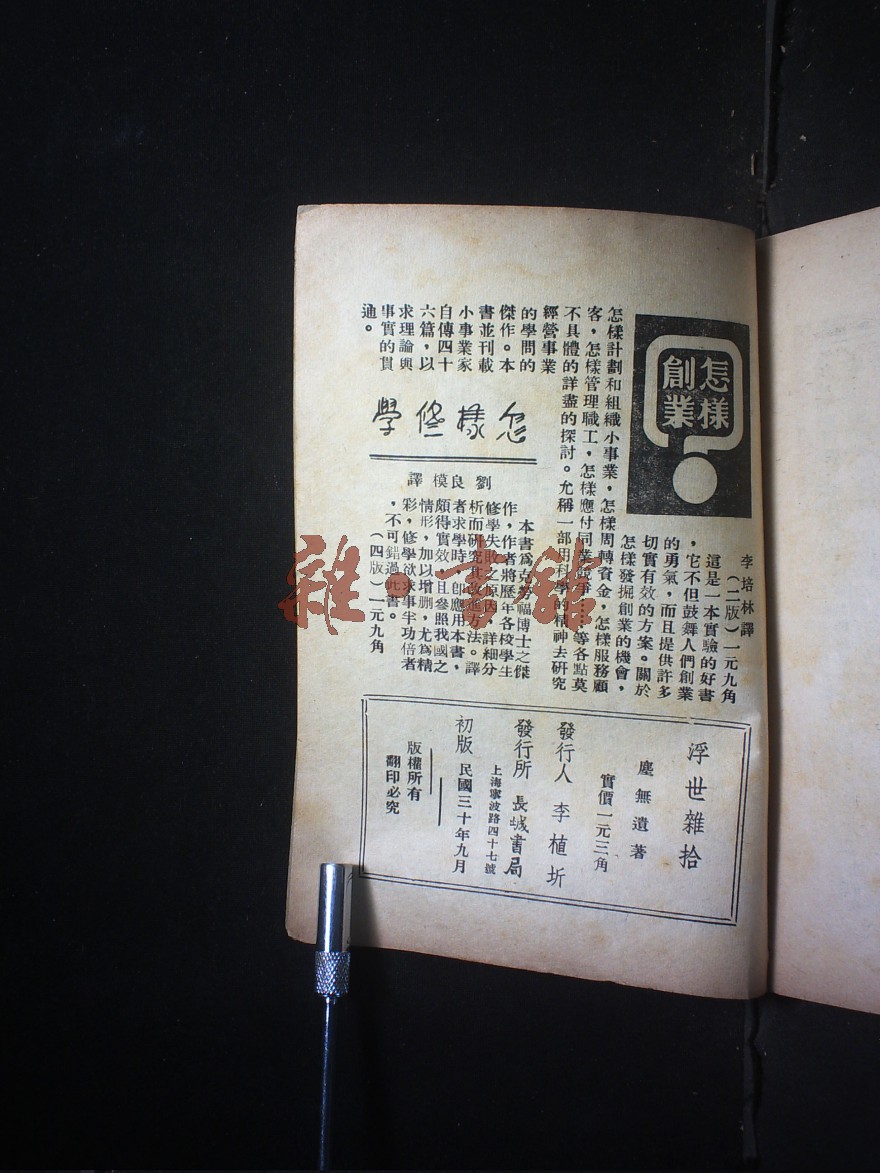 怎樣
創業
李培林譯
(二版)一元九角
這是一本實驗的好書
，它不但鼓舞人們創業
的勇氣，而且提供許多
切實有效的方案。關於
怎樣發掘創業的機會，
怎樣計劃和組織小事業，怎樣周轉資金，怎樣服務顧
客，怎樣管理職工，怎樣應付同業競爭……等各點莫
不具體的詳盡的探討。允稱一部用科學的精神去研究
經營事業
的學問的
傑作。本
書並刊載
小事業家
自傳四十
六篇，以
求理論與
事實的貫
通。
怎樣修學
劉良模譯
本書爲克勞福博士之傑
作，作者將歷年各校學生
修學失敗之原因，詳細分
析而研究其改進方法。譯
者求學時，卽應用本書，
頗得實效且參照我國之
情形，加以增刪，尤爲精
彩，修學欲求事半功倍者
，不可錯過此書。
(四版)一元九角
浮世雜拾
塵無遺著
實價一元三角
發行人 李植圻
發行所 長城書局
上海寧波路四十七號
初版 民國三十年九月
版權所有
翻印必究
雜·書館